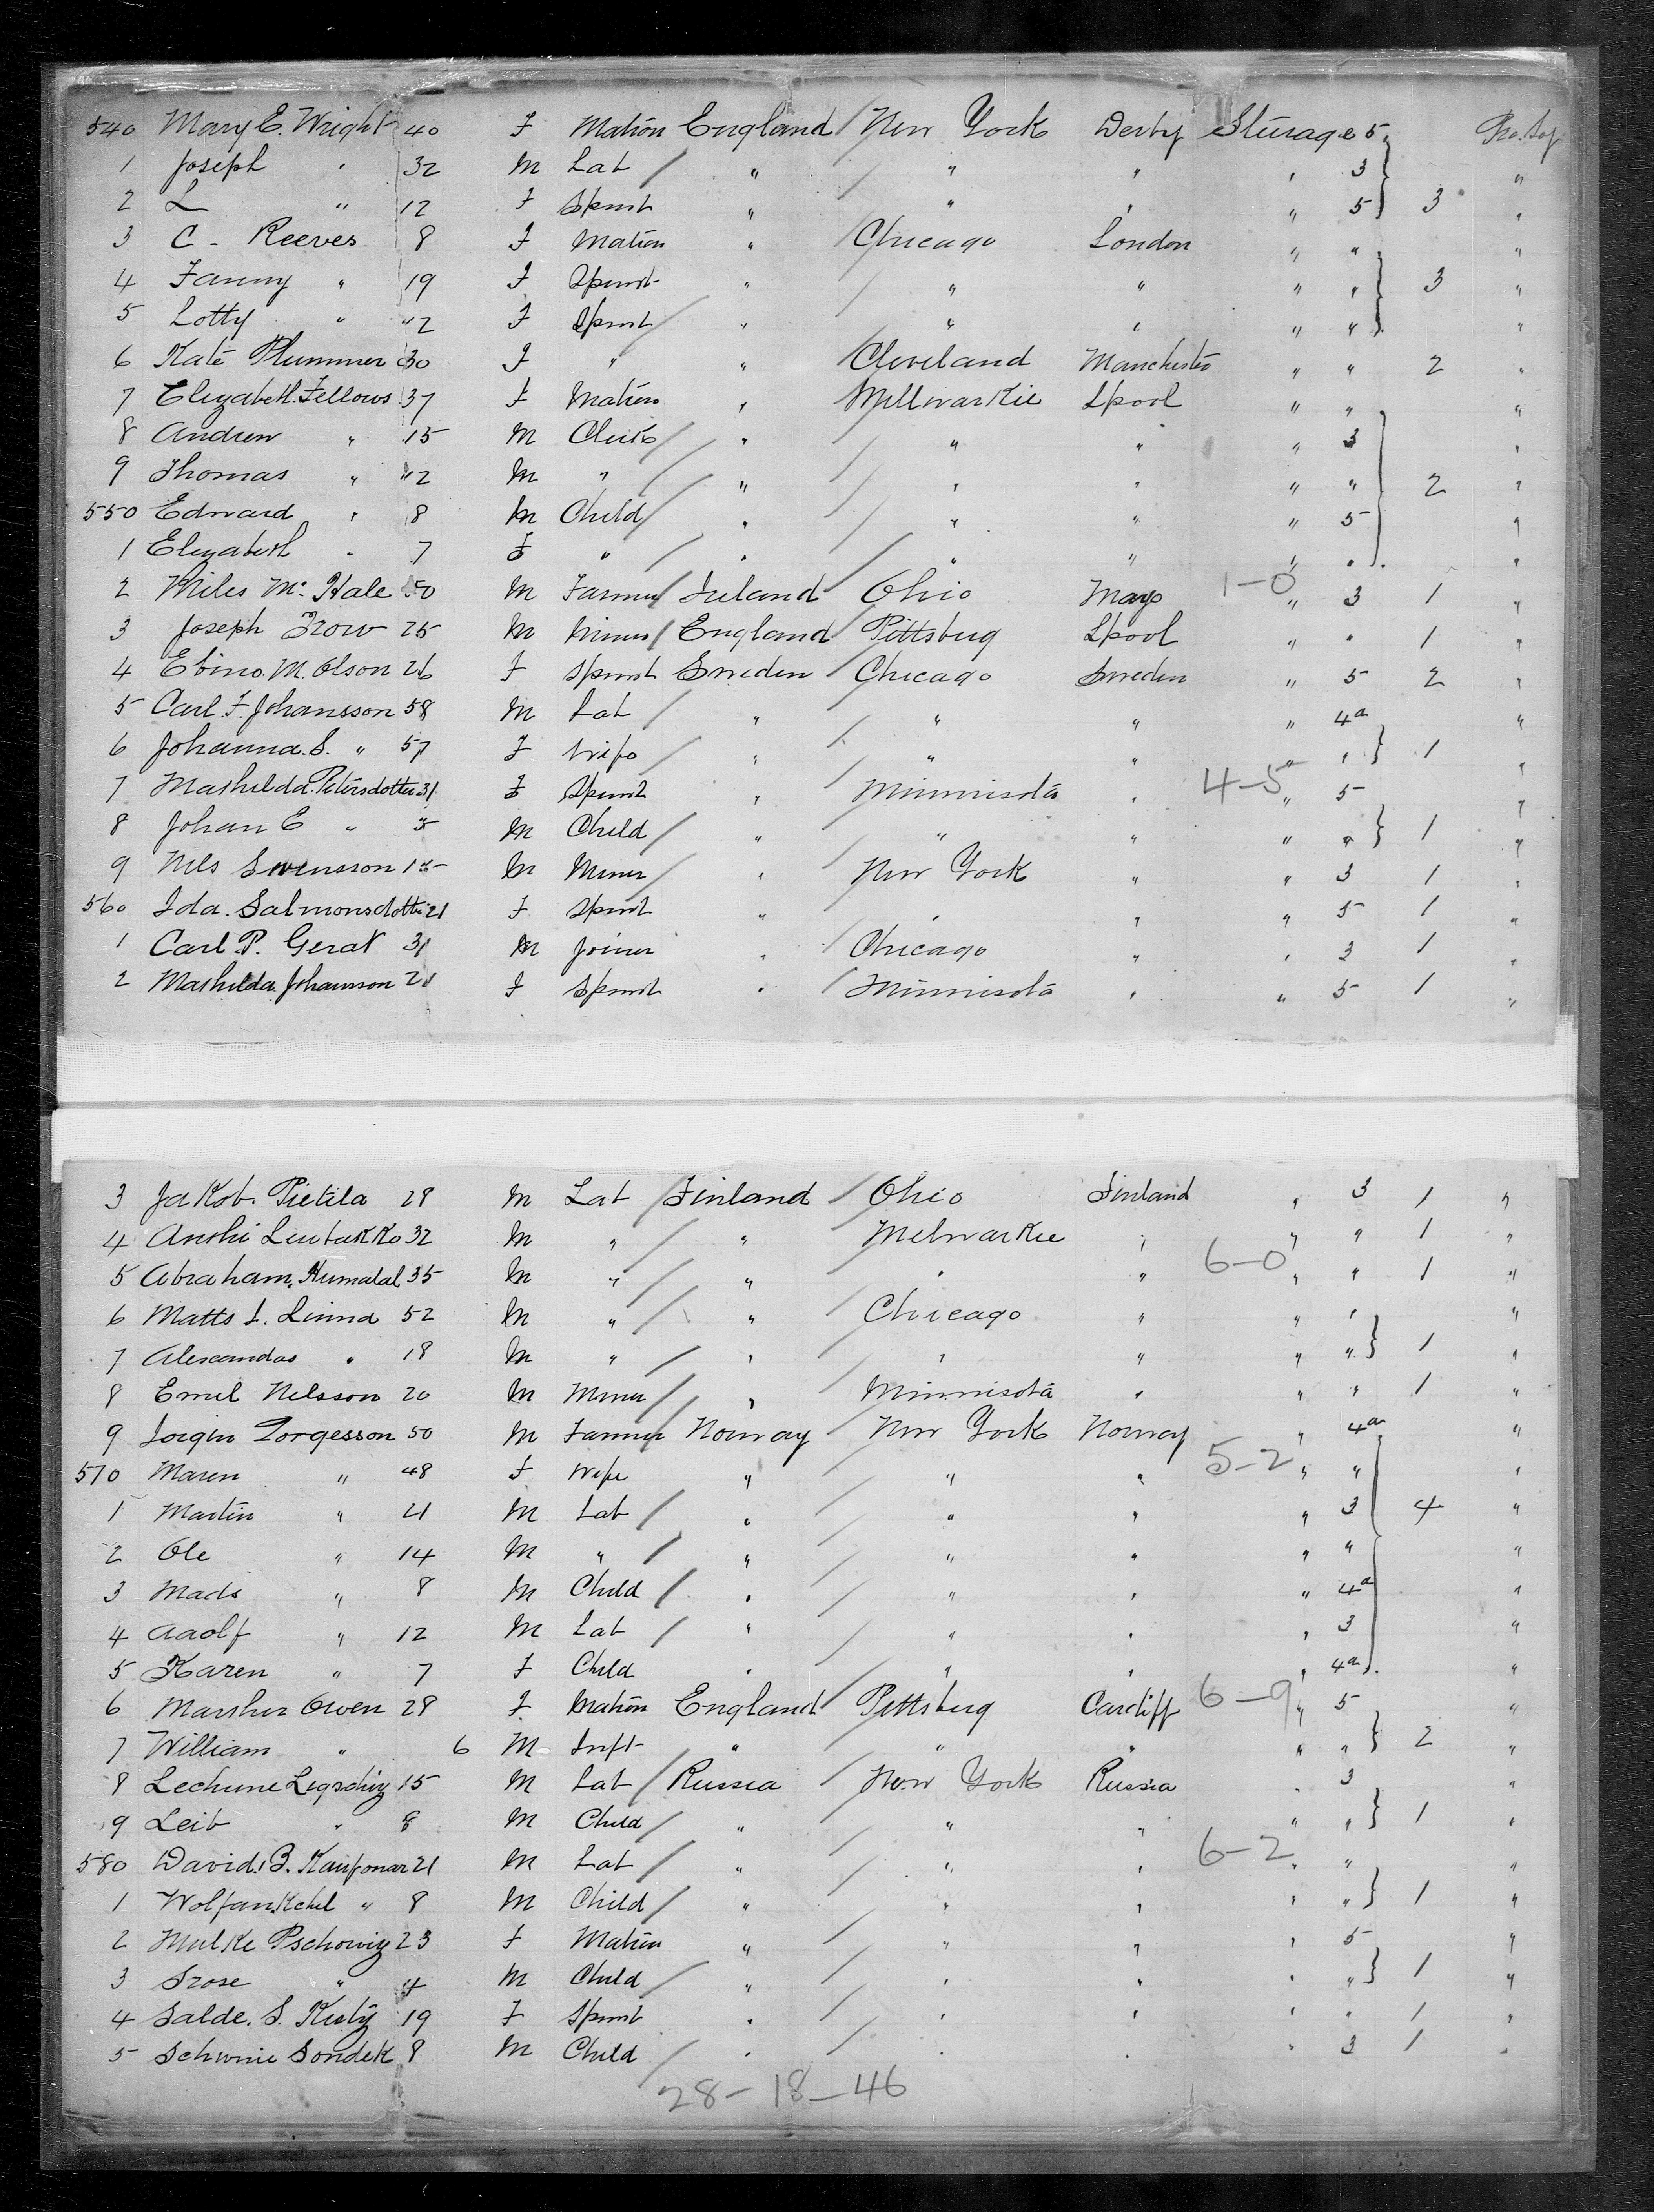 540 Mary E. Wright 40 F Matron England New York Derby Sturage 5 Pro. Soj
1 Joseph " 32 M Lab " " " " 3 "
2 L " 12 F Spinst " " " " 5 3 "
3 C - Reeves 8 F Matron " Chicago London " " "
4 Fanny " 19 F Spinst " " " " " 3 "
5 Lotty " "2 F Spinst " " " " " "
6 Kate Plummer 30 F " " Cleveland Manchester " " 2 "
7 Elizabeth Fellows 37 F Matron " Millwarkie Lpool " " "
8 Andrew " 15 M Clerk " " " " 3 "
9 Thomas " "2 M " " " " " " 2 "
550 Edward " 8 M Child " " " " 5 "
1 Elizabeth " 7 F " " " " " " "
2 Miles Mc Hale 50 M Farmer Ireland Ohio Mayo 1-0 " 3 1 "
3 Joseph Trow 25 M Miner England Pittsburg Lpool " " 1 "
4 Ebino. M. Olson 26 F Spinst Sweden Chicago Sweden " 5 2 "
5 Carl F. Johansson 58 M Lab " " " " 4a "
6 Johanna. S. " 57 F Wife " " " " 1 "
7 Mathilda Petersdotter 31 F Spinst " Minnisota " 4-5 " 5
8 Johan E " M Child " " " " " 1 "
9 Nils Swensson M Miner " New York " " 3 1 "
560 Ida. Salmonsdotter 21 F Spinst " " " " 5 1 "
1 Carl P. Gerat 31 M Joiner " Chicago " " 3 1 "
2 Mathilda Johansson 21 F Spinst " Minnisota " " 5 1 "
3 Jakob. Pietila 28 M Lab Finland Ohio Finland " 3 1 "
4 Anthi Leutakko 32 M " " Melwarkie " " " 1 "
5 Abraham. Kumalal 35 M " " " " 6-0 " " 1 "
6 Matts L. Linna 52 M " " Chicago " " " "
7 Alexandas " 18 M " " " " " " 1 "
8 Emil Nelsson 20 M Miner " Minnisota " " " 1 "
9 Jorgin Torgesson 50 M Farmer Norway New York Norway " 4a "
570 Maren " 48 F Wife " " " 5-2 " " "
1 Martin " 21 M Lab " " " " 3 4 "
2 Ole " 14 M " " " " " " "
3 Mads " 8 M Child " " " " 4a "
4 Aaolf " 12 M Lab " " " " 3 "
5 Karen " 7 F Child " " " " 4a "
6 Marsher Owen 28 F Matron England Pittsburg Cardiff 6-9 " 5 "
7 William " 6 M Inft " " " " " 2 "
8 Lechune 15 M Lab Russia New York Russia " 3 "
9 Leib " 8 M Child " " " " " 1 "
580 David. B. Kaufonar 21 M Lab " " " 6-2 " " "
1 " 8 M Child " " " " " 1 "
2 Mulke Pschowiz 23 F Matron " " " " 5 "
3 Srose " 4 M Child " " " " " 1 "
4 Salde. S. 19 F Spinst " " " " " 1 "
5 Schwnie Sondek 8 M Child " " " " 3 1 "
28-18-46